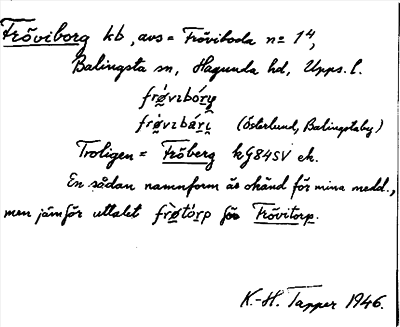 Fröviborg kb, avs = Fröviboda nº 1⁴,
Balingsta sn, Hagunda hd, Upps. l.
(Österlund, Balingstaby)
Troligen = Fröberg kG84SV ek.
En sådan namnform är okänd för mina medd.,
men jämför uttalet frøtórp för Frövitorp.
K.-H. Tapper 1946.